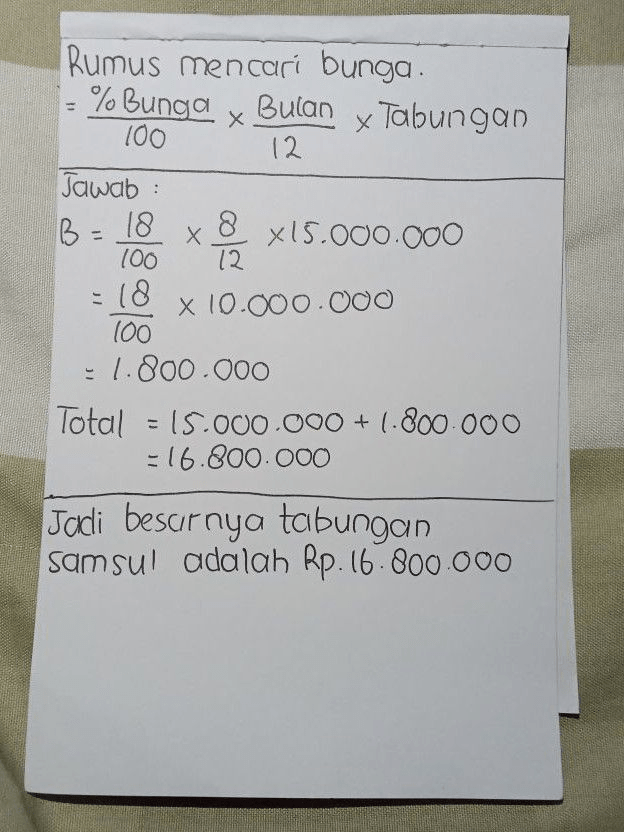 Rumus mencari bunga.
= % Bunga / 100 × Bulan / 12 × Tabungan
Jawab :
B = 18 / 100 × 8 / 12 × 15.000.000
= 18 / 100 × 10.000.000
= 1.800.000
Total = 15.000.000 + 1.800.000
= 16.800.000
Jadi besarnya tabungan
samsul adalah Rp.16.800.000